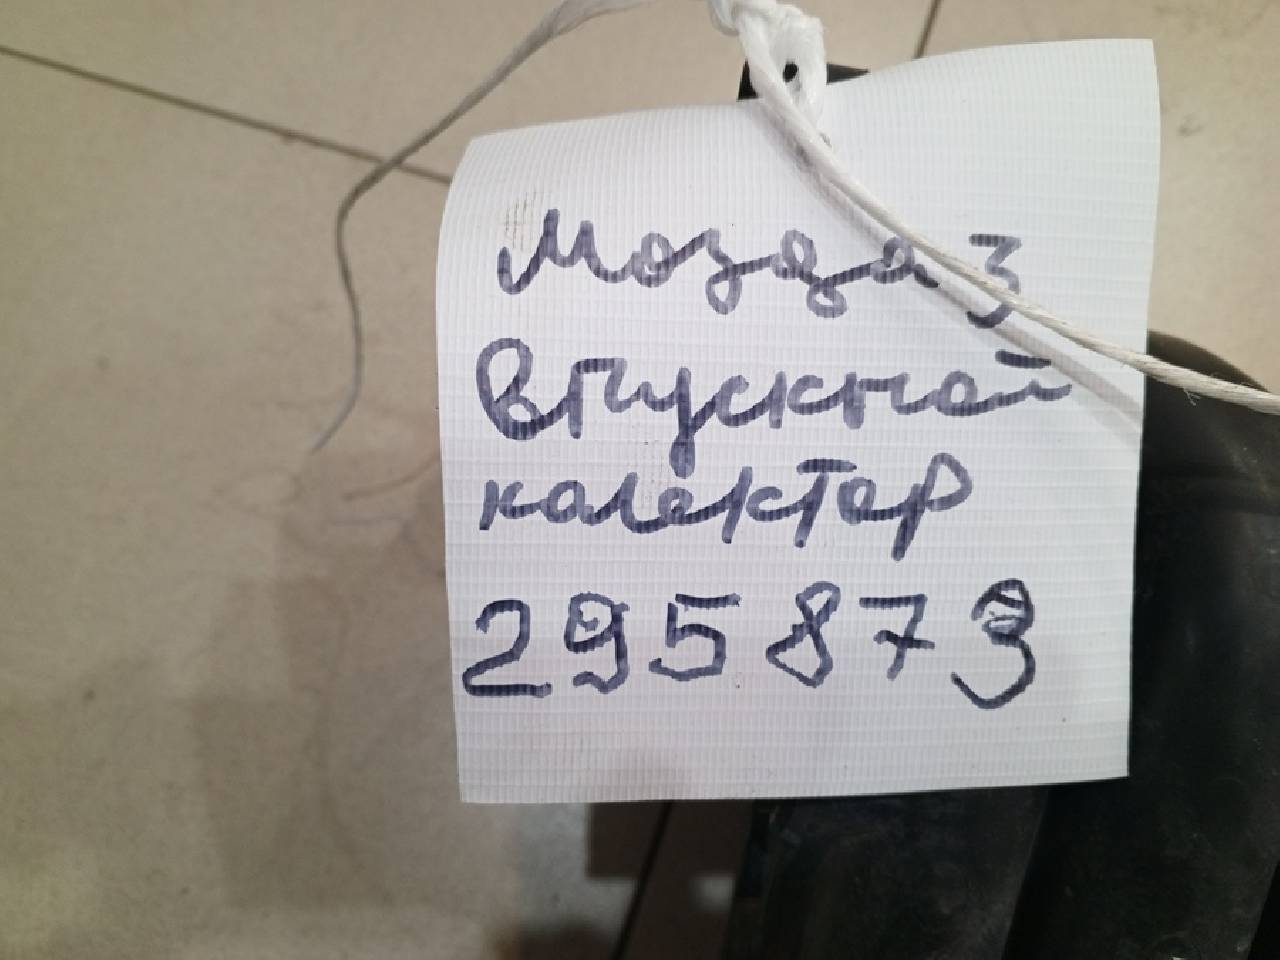 Мозда 3
Впускной
калектор
295873